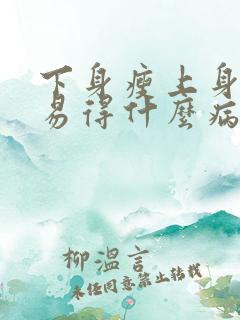 下身瘦上身
易得什麼病
柳溫言
未经同意禁止转载